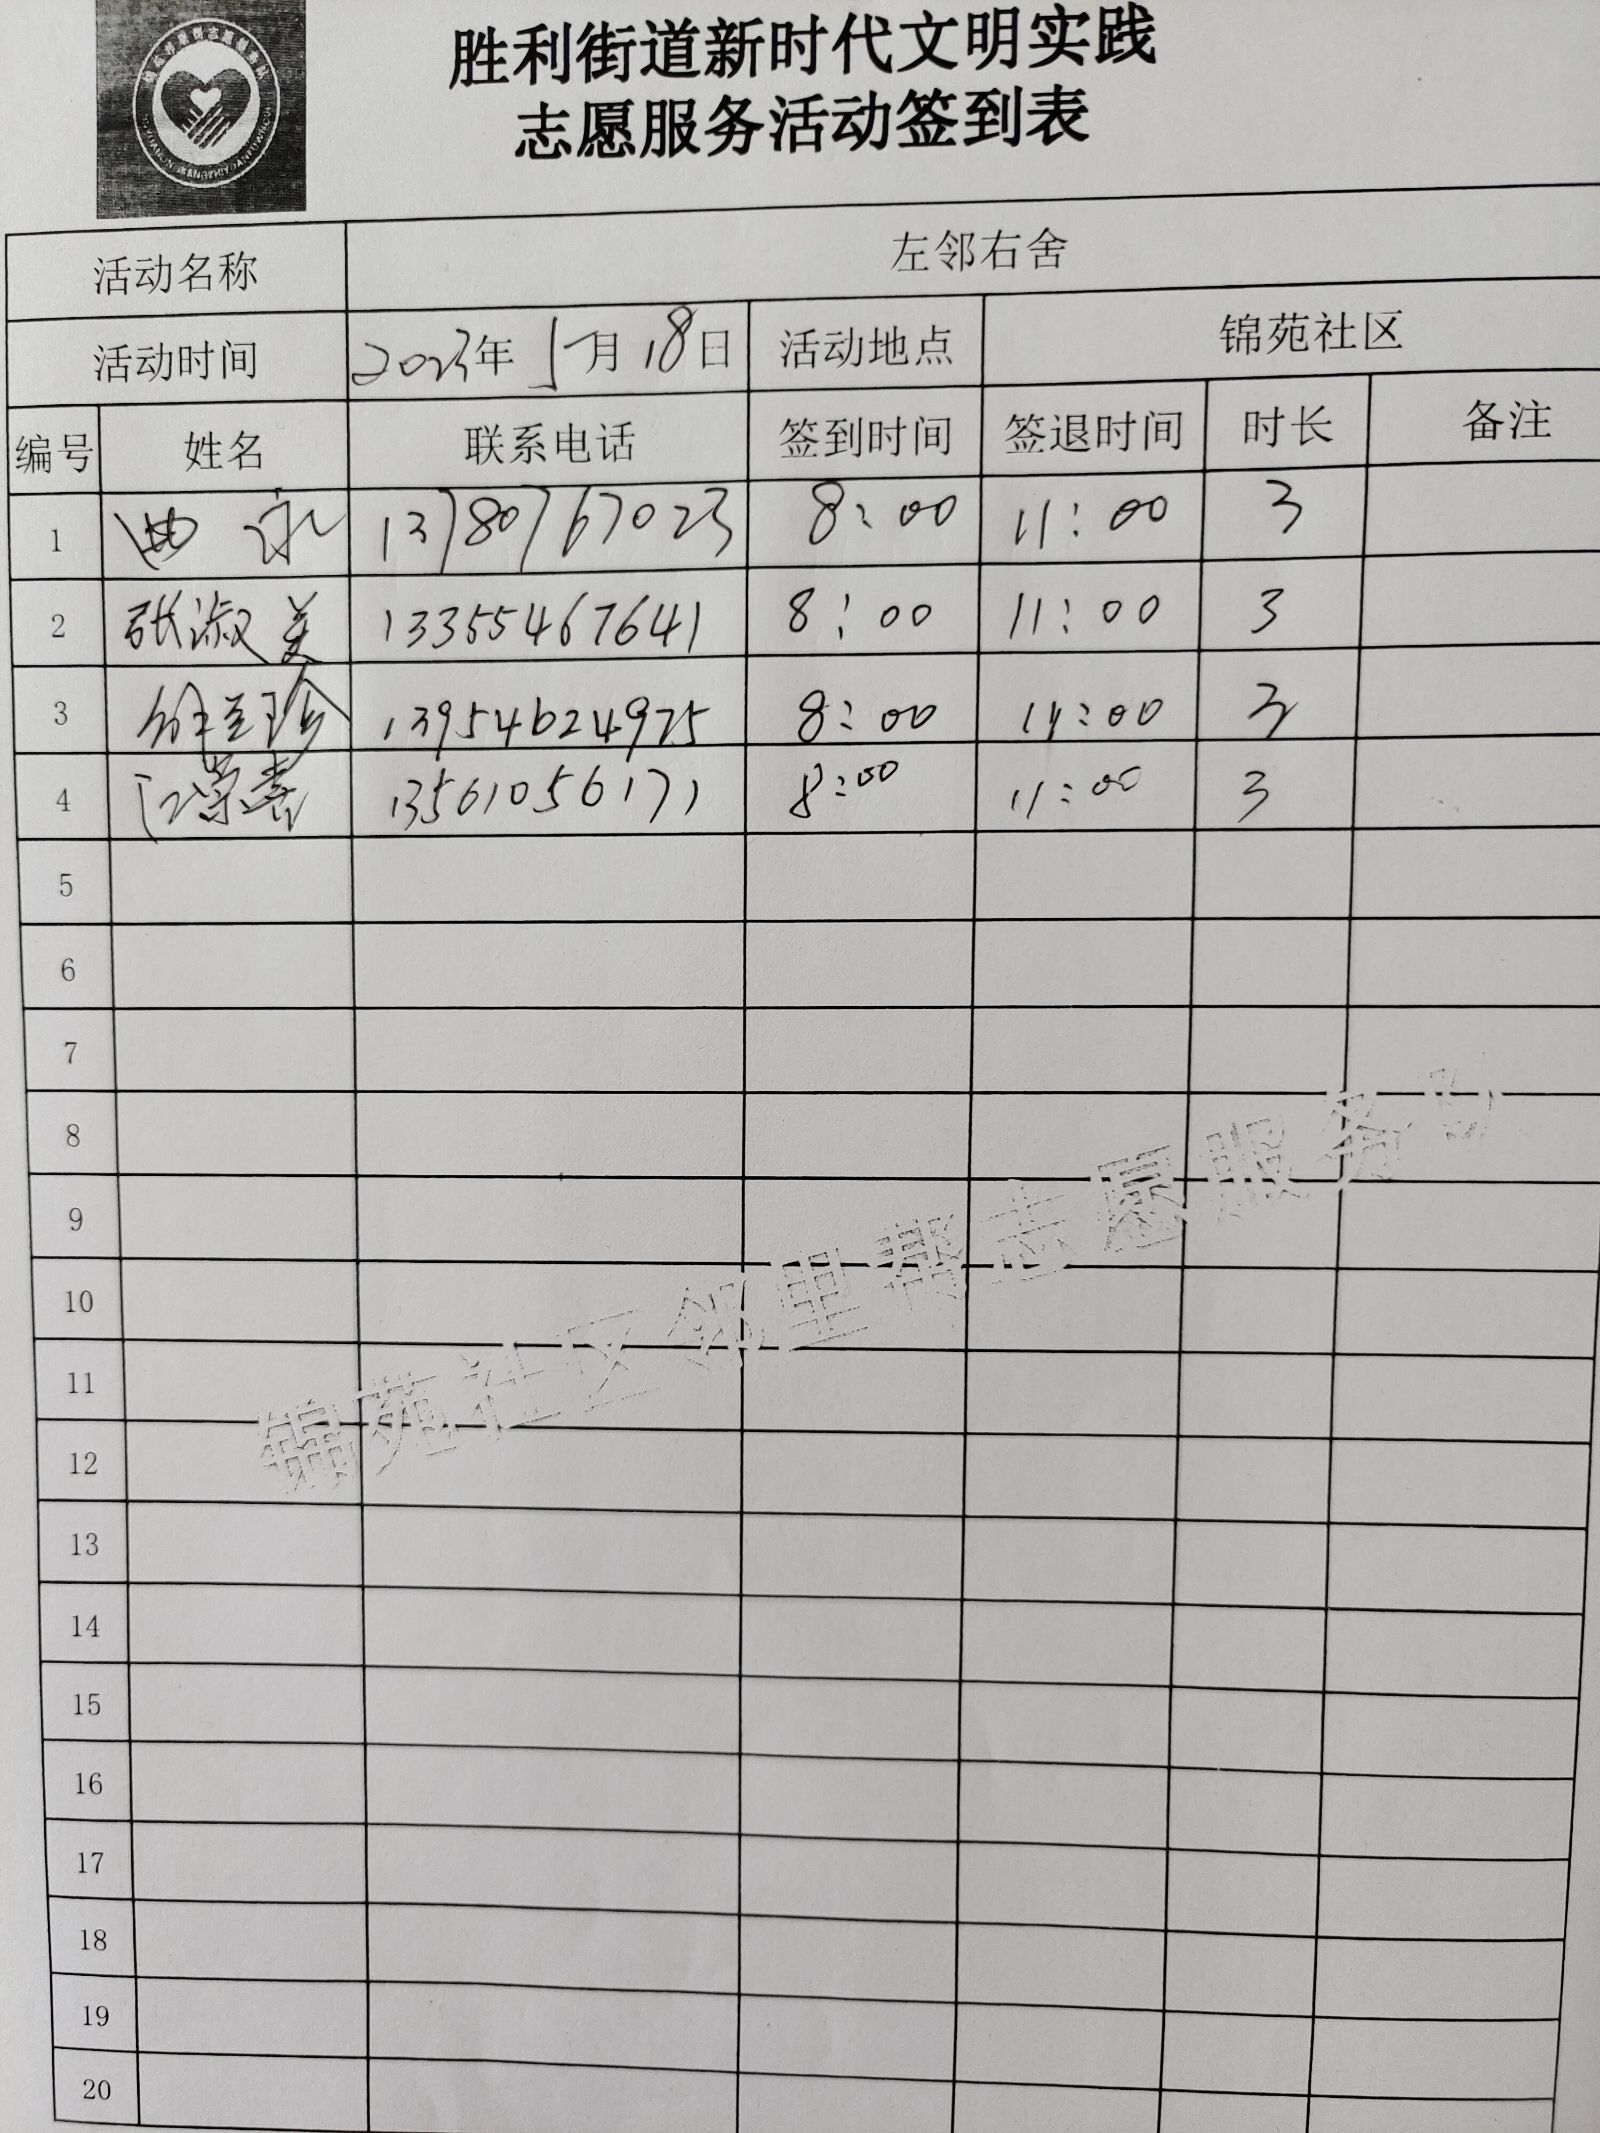 胜利街道新时代文明实践
志愿服务活动签到表
活动名称 左邻右舍
活动时间 2023年 5月 18日 活动地点 锦苑社区
编号 姓名 联系电话 签到时间 签退时间 时长 备注
1 曲 永 13780767023 8:00 11:00 3
2 张淑美 13355467641 8:00 11:00 3
3 13954624975 8:00 11:00 3
4 13561056171 8:00 11:00 3
5
6
7
8
9
10
11
12
13
14
15
16
17
18
19
20
锦苑社区邻里帮志愿服务队